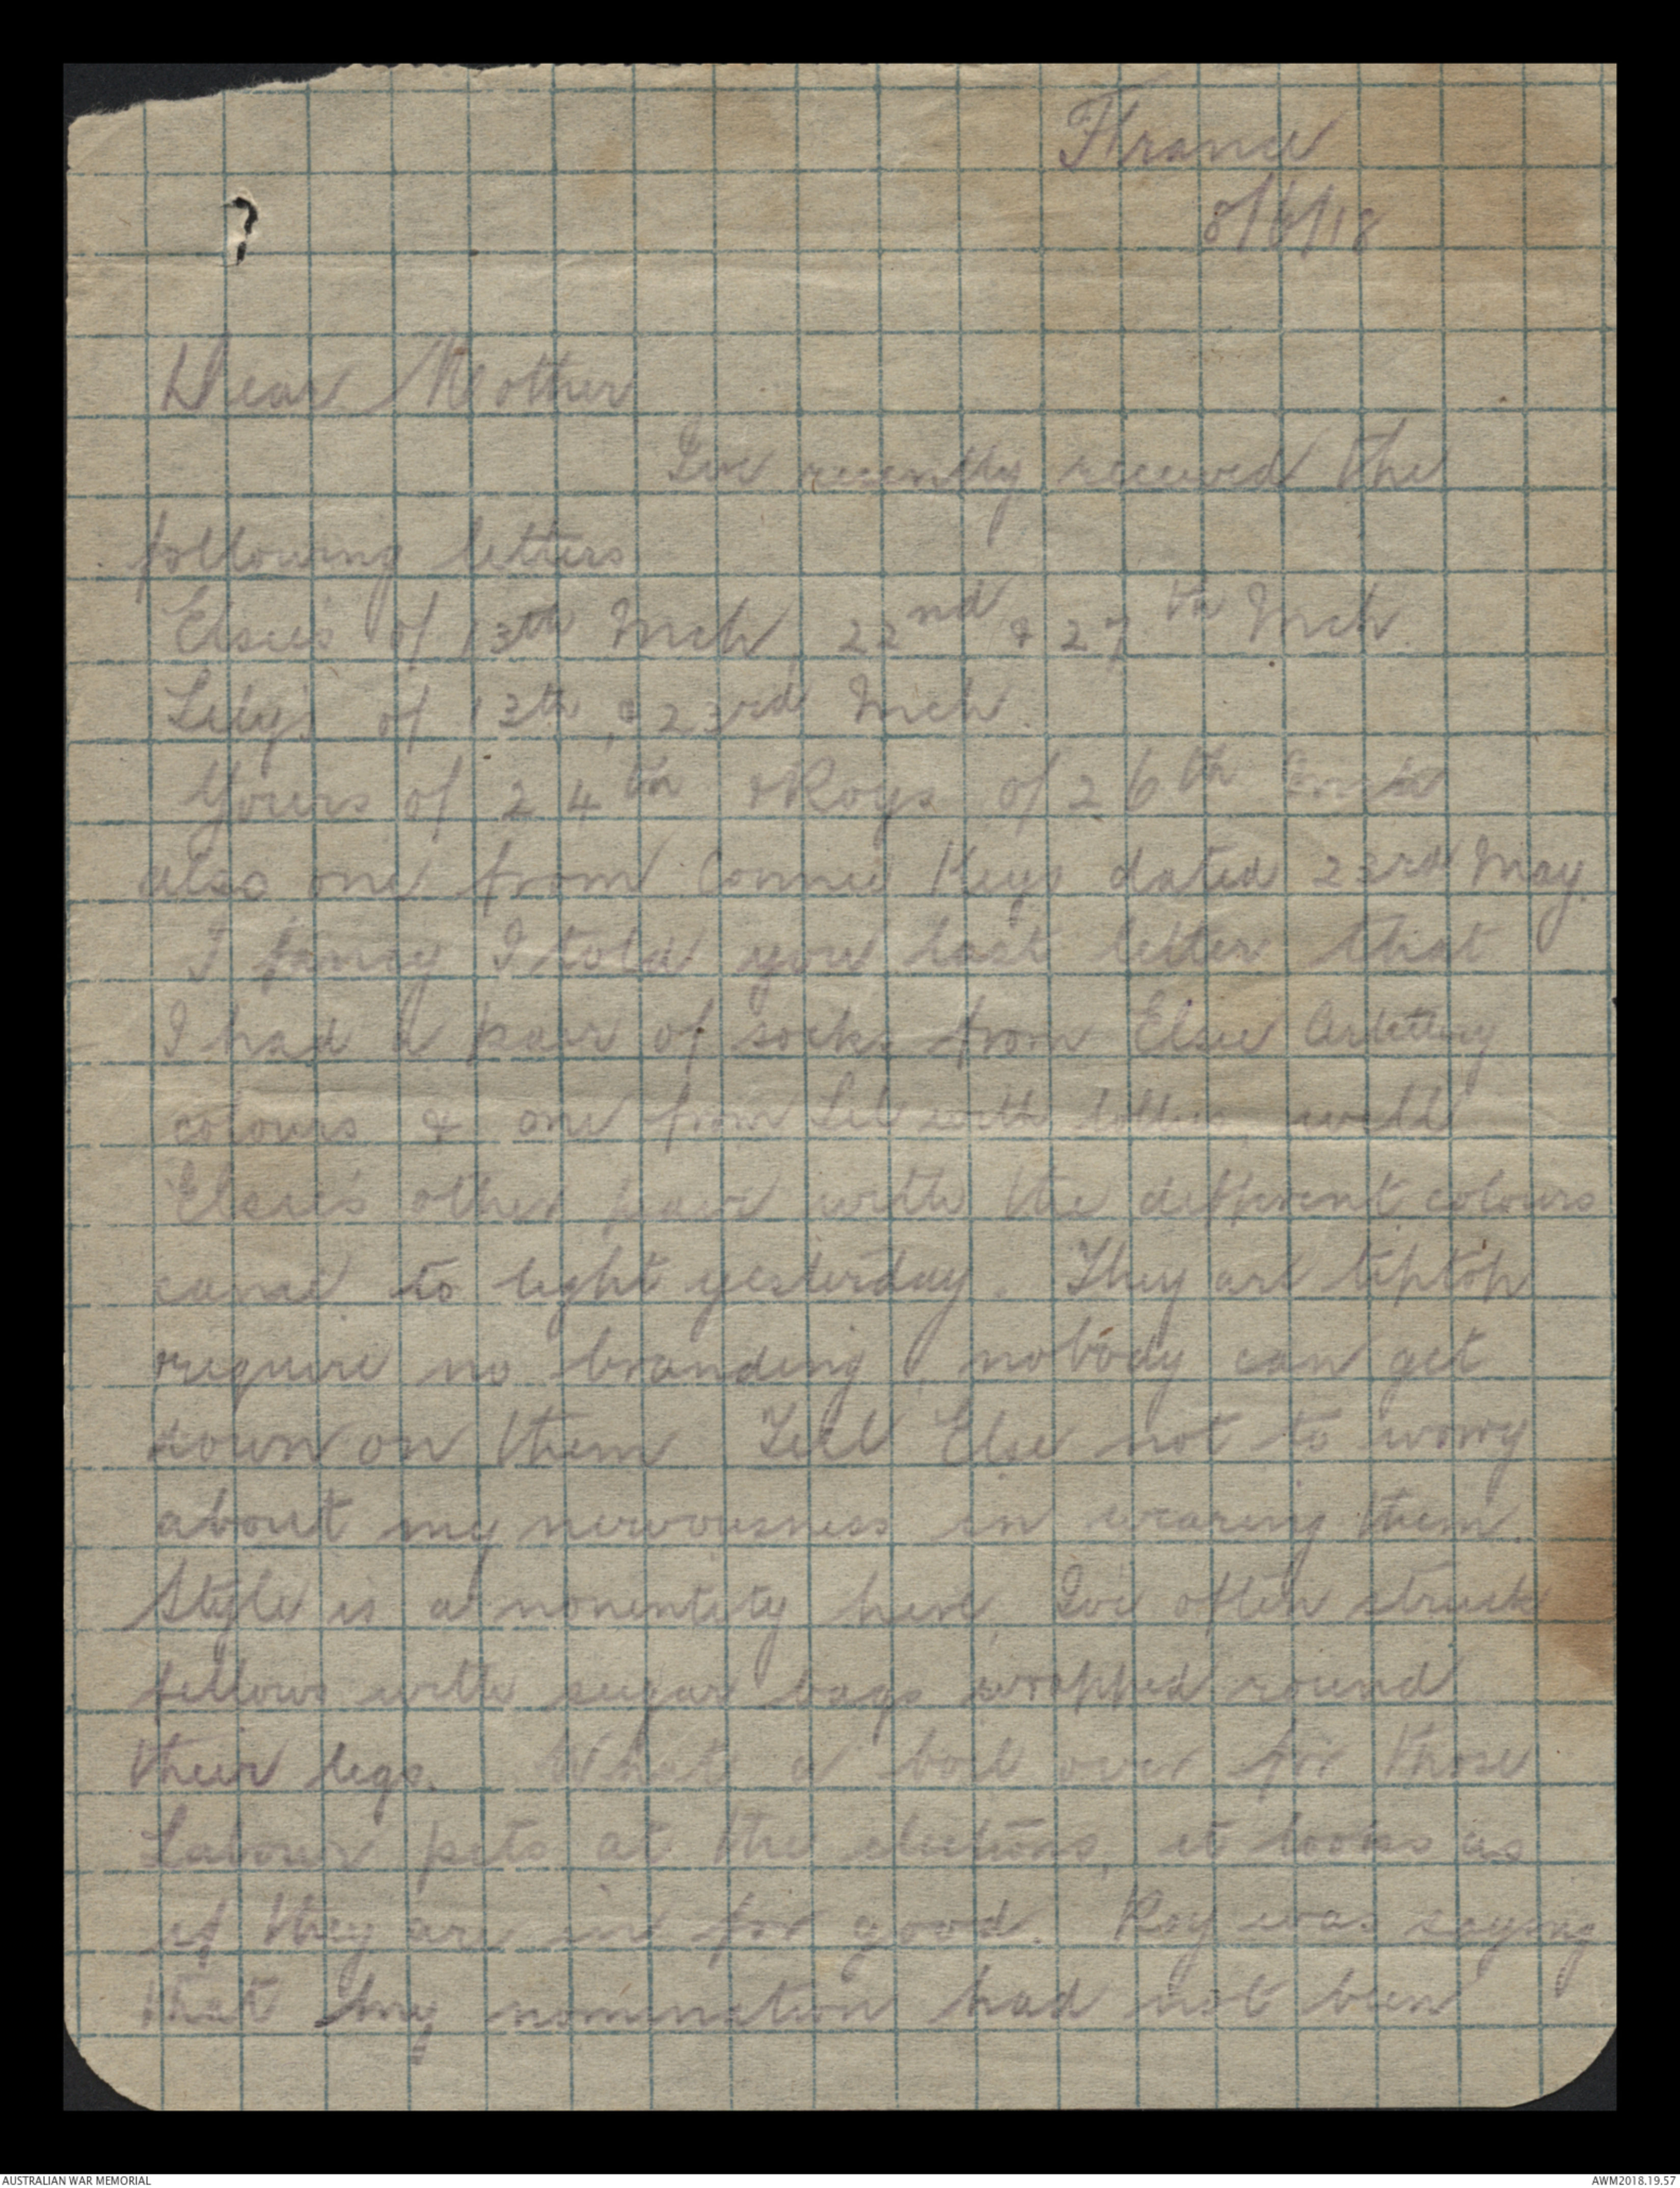 France
8/6/18
Dear Mother
I've recently received the
following letters
Elsie's of 13th Mch, 22nd & 27th Mch.
Lily's of 13th, & 23rd Mch.
Yours of 24th & Roys of 26th
also one from Connie Keys dated 23rd May.
I fancy I told you last letter that
I had a pair of socks from Elsie Artillery
colours & one from Lil with lollies, well
Elsie's other pair with the different colours
came to light yesterday. They are tiptop
require no branding, nobody can get
down on them Tell Else not to worry
about my nervousness in wearing them.
Style is a nonentity here, I've often struck
fellows with sugar bags wrapped round
their legs. What a boil over for those
Labour pets at the elections, it looks as
if they are in for good. Roy was saying
that my nomination had not been
AUSTRALIAN WAR MEMORIAL
AWM2018.19.57